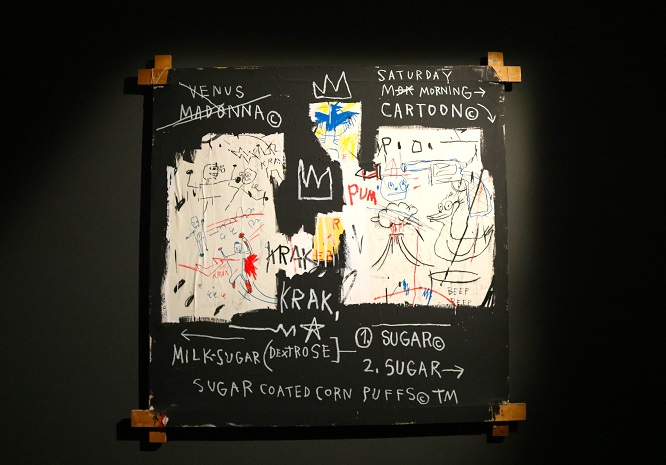 VENUS
MADONNA©
SATURDAY
MORNING→
CARTOON©
KRAK
PUM
R
KRAK
KRAK,
BEEP
BEEP
← 1. SUGAR©
MILK-SUGAR (DEXTROSE]
2. SUGAR→
SUGAR COATED CORN PUFFS© TM